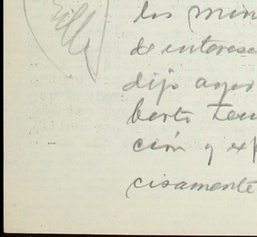 los min
de interese
dijo ayer
berto
ción y exp
cisamente